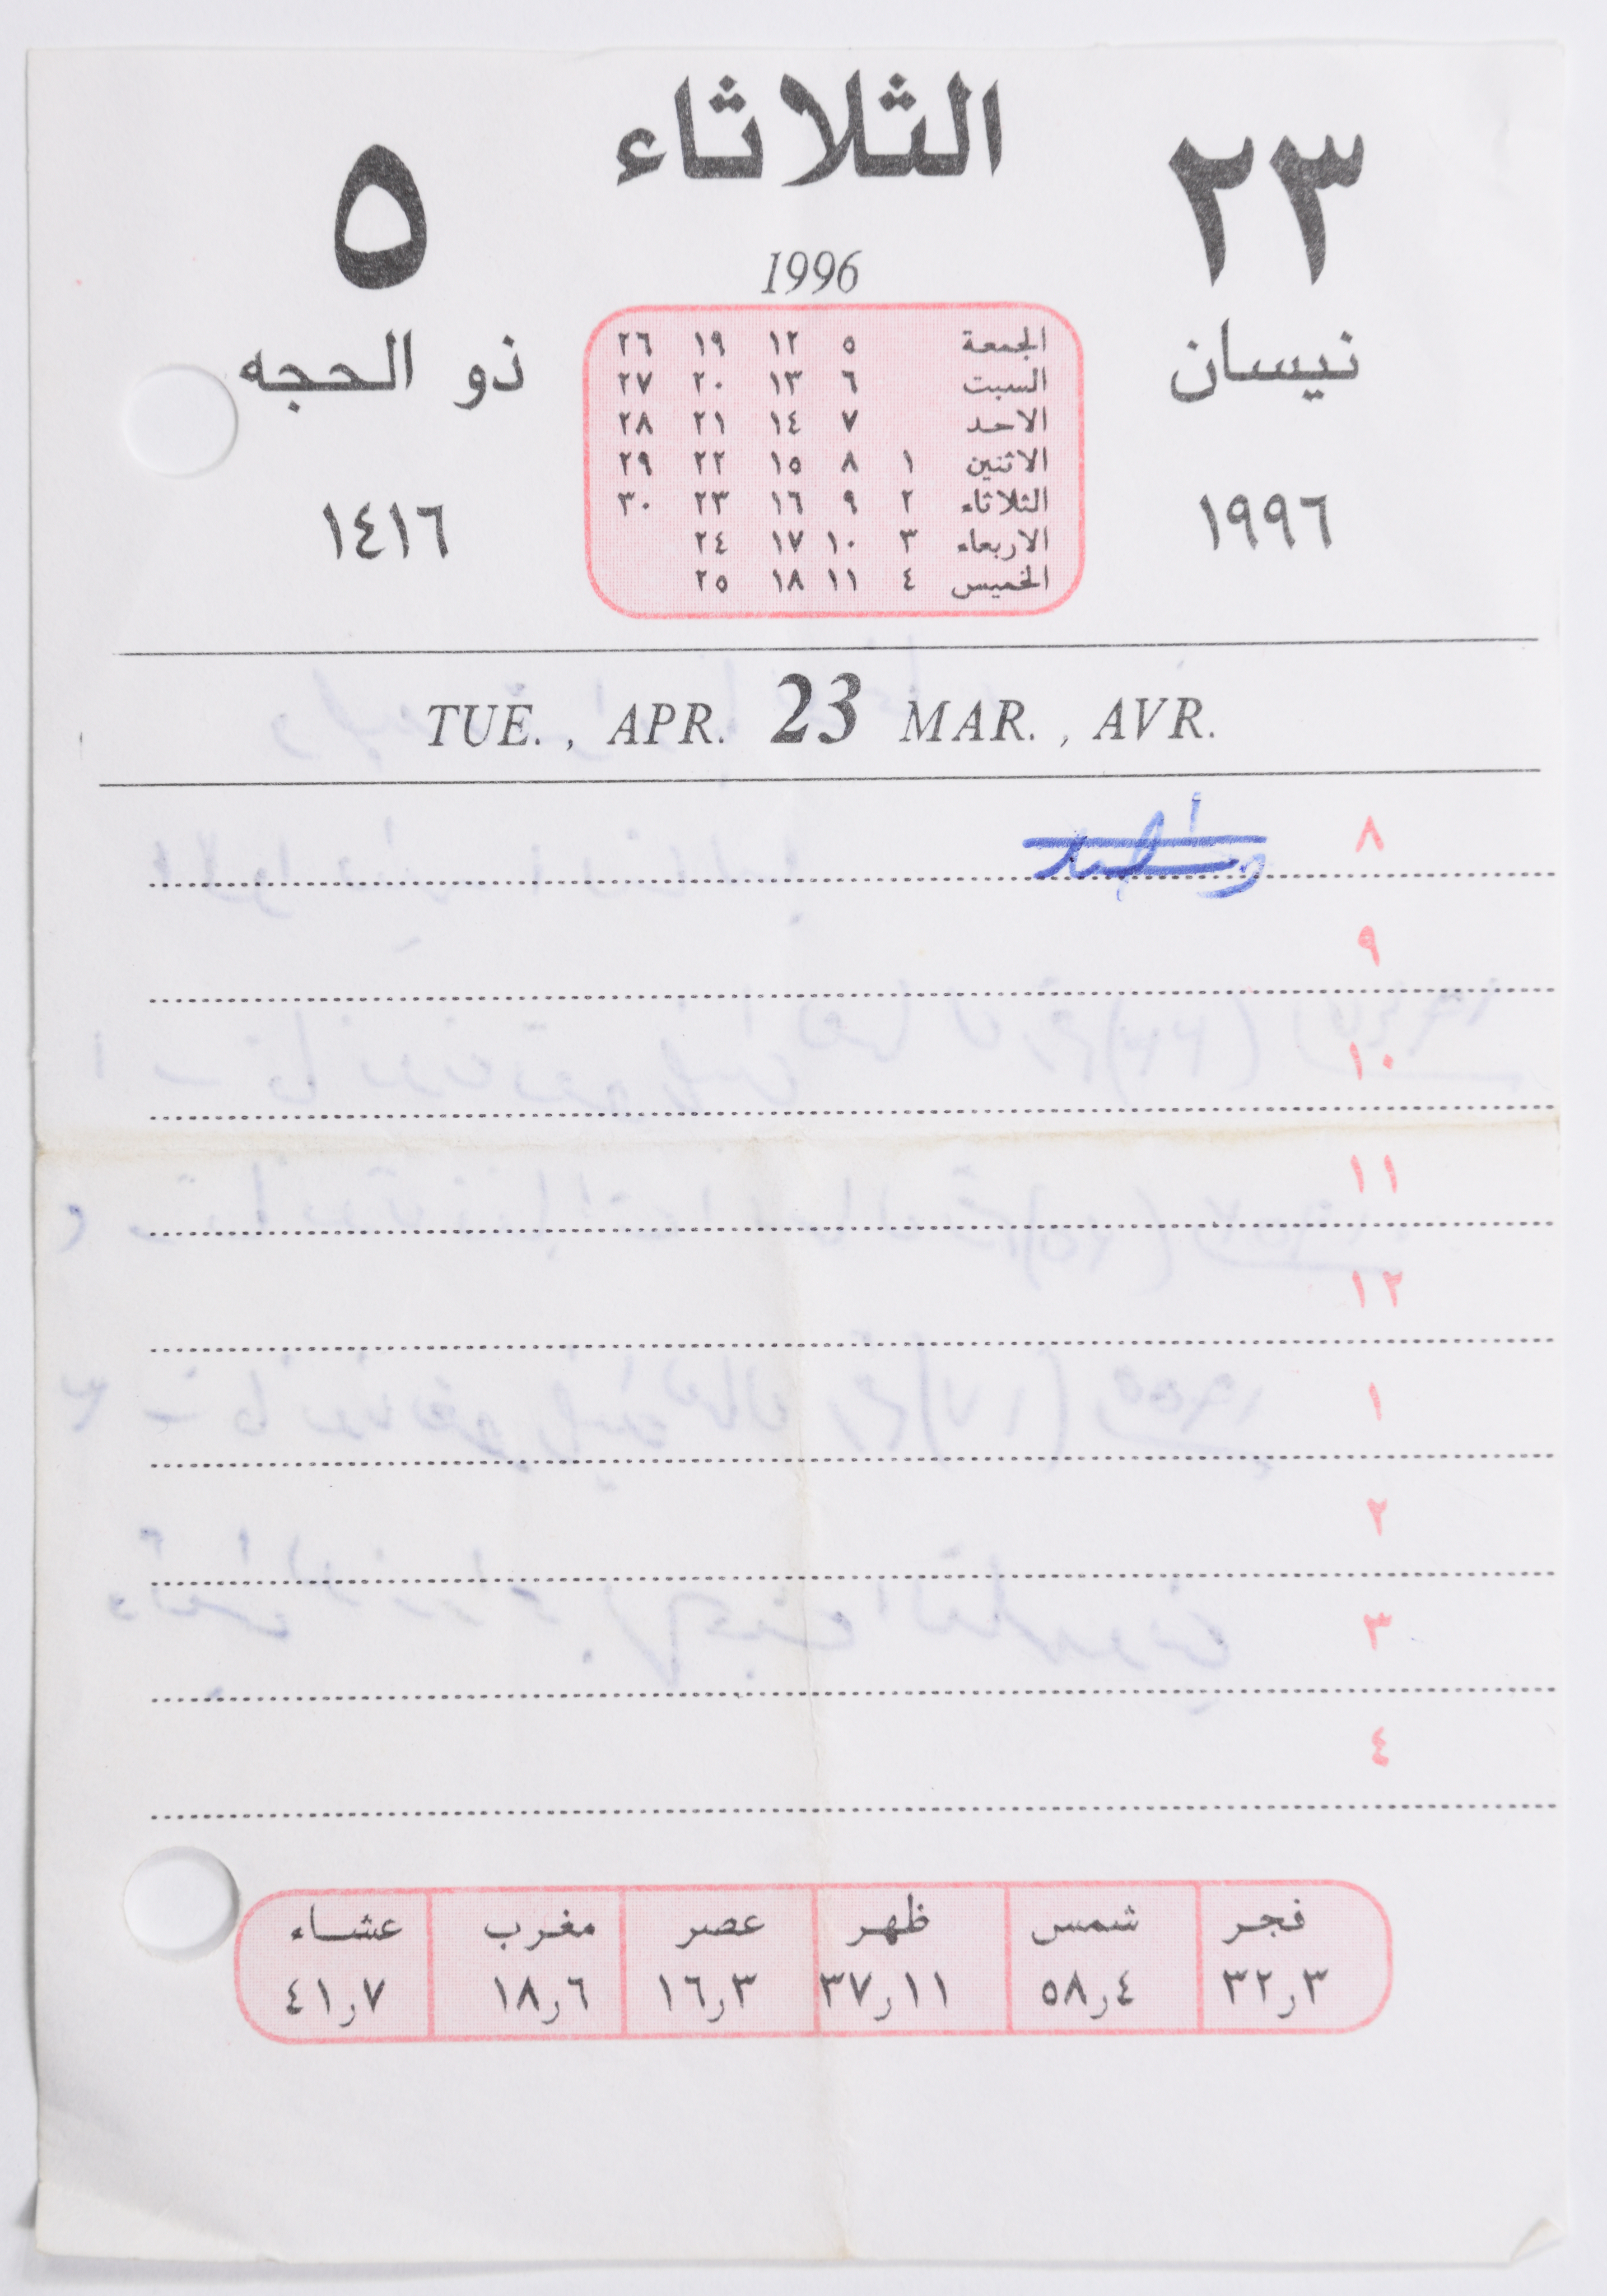 الثلاثاء
٢٣
٥
1996
نيسان
ذو الحجه
١٩٩٦
١٤١٦
الجمعة ٥ ١٢ ١٩ ٢٦
السبت ٦ ١٣ ٢٠ ٢٧
الاحد ٧ ١٤ ٢١ ٢٨
الاثنين ١ ٨ ١٥ ٢٢ ٢٩
الثلاثاء ٢ ٩ ١٦ ٢٣ ٣٠
الاربعاء ٣ ١٠ ١٧ ٢٤
الخميس ٤ ١١ ١٨ ٢٥
TUE. , APR. 23 MAR. , AVR.
٨
٩
١٠
١١
١٢
١
٢
٣
٤
فجر شمس ظهر عصر مغرب عشاء
٣٢٫٣ ٥٨٫٤ ٣٧٫١١ ١٦٫٣ ١٨٫٦ ٤١٫٧